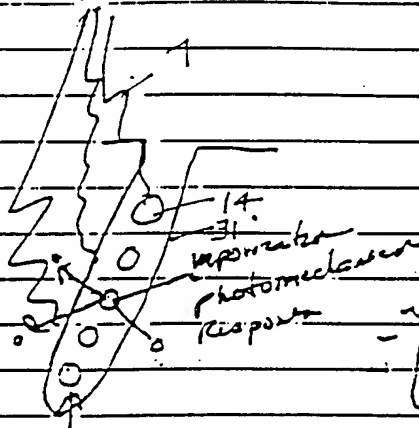 1
14
31.
vaporization
photomechanical
Response